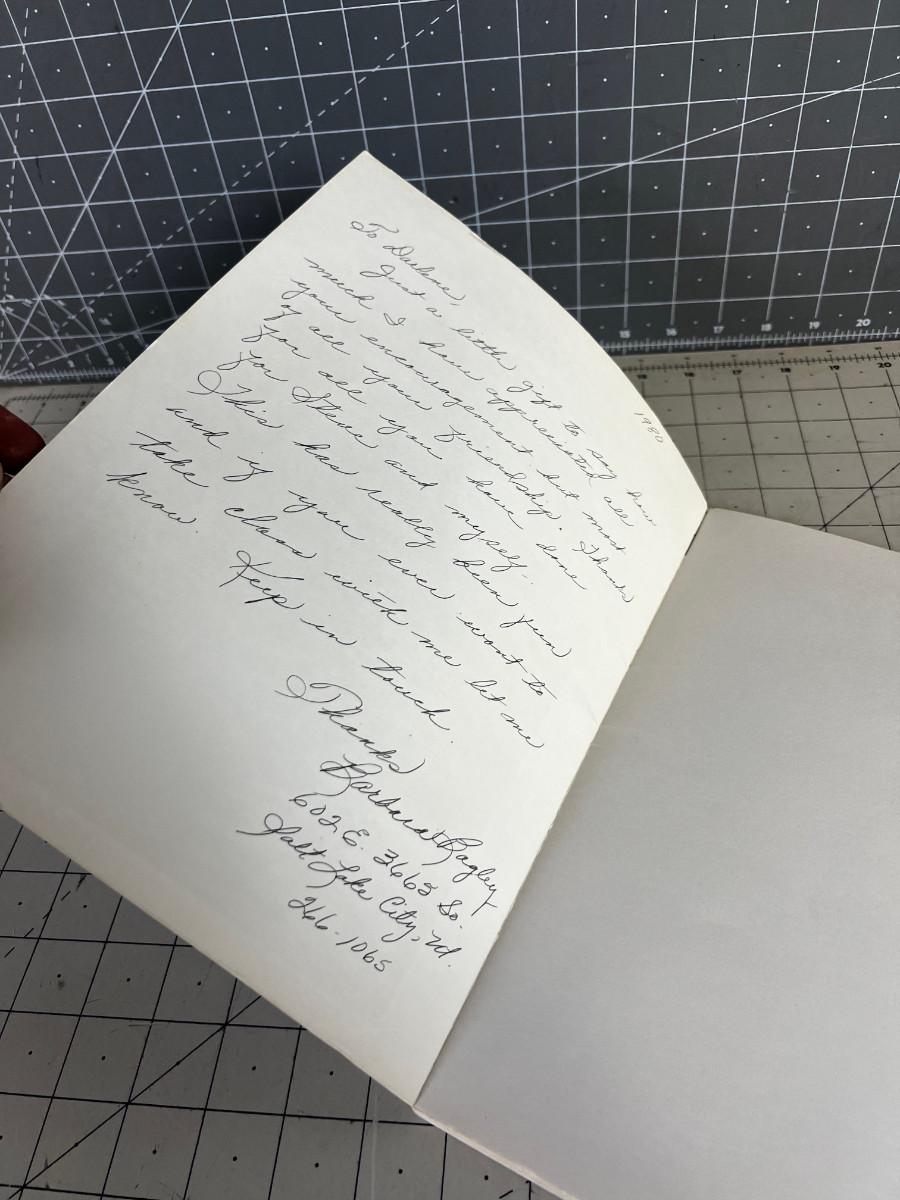 1980
To Darlene,
Just a little gift to say how
much I have appreciated all
your encouragement but most
of all your friendship. Thanks
for all you have done
for Steve and myself.
This has really been fun
and if you ever want to
take class with me let me
know.
Keep in touch.
Thanks
Barbara Bagley
602 E. 3665 So.
Salt Lake City, Ut.
266-1065
15 16 17 18 19 20
16 17 18 19 20